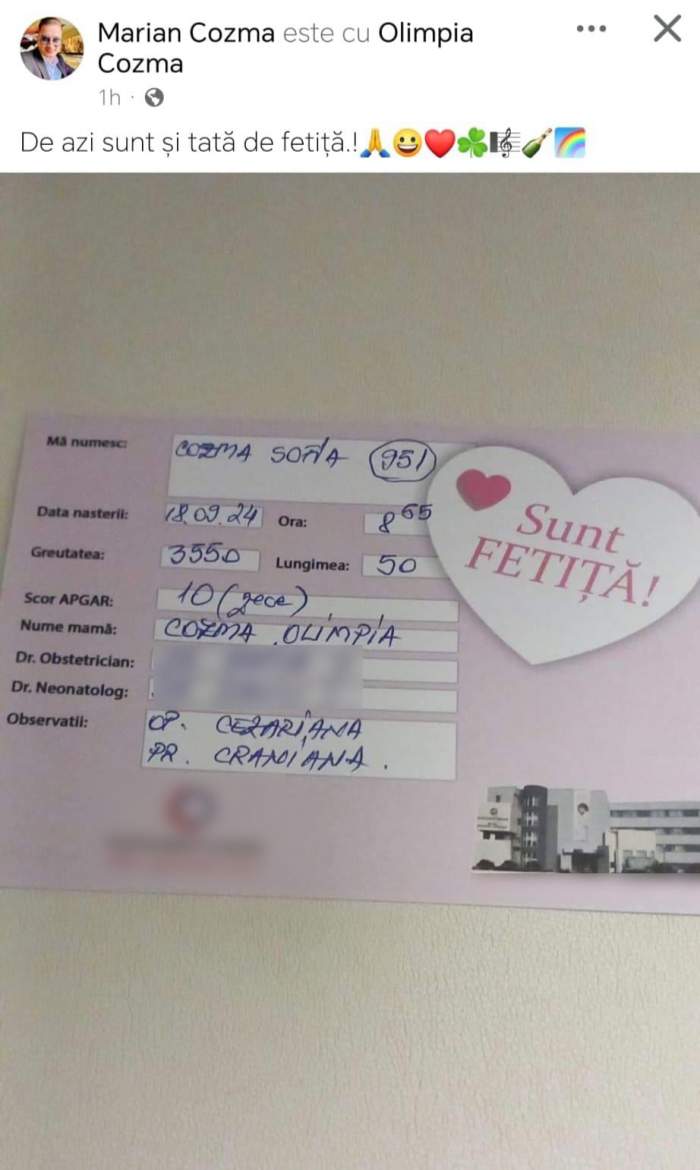 Marian Cozma este cu Olimpia
Cozma
1h ·
De azi sunt și tată de fetiță.!🙏😀❤️☘️🎼🍾🌈
Mă numesc: COZMA SOFIA 951
Data nasterii: 18.09.24 Ora: 8 65
Greutatea: 3550 Lungimea: 50
Scor APGAR: 10 (zece)
Nume mamă: COZMA OLIMPIA
Dr. Obstetrician:
Dr. Neonatolog:
Observatii: OP. CEZARIANA
PR. CRANIANA.
Sunt
FETIȚĂ!